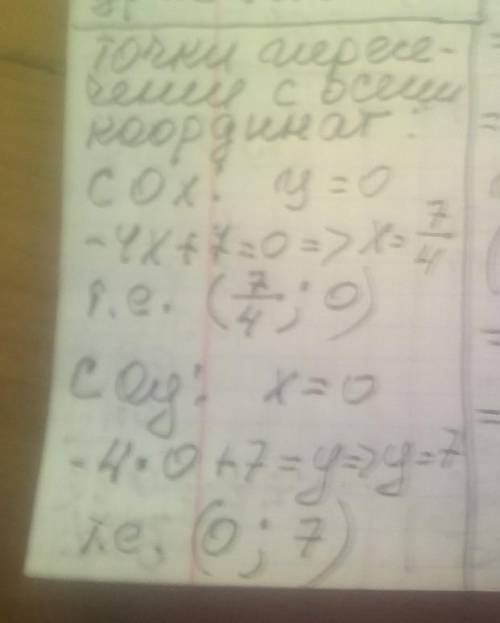 точки пересе-
чения с осями
координат:
с Ox: y = 0
-4x + 7 = 0 => x = 7/4
т.е. (7/4; 0)
с Oy: x = 0
-4·0 + 7 = y => y = 7
т.е. (0; 7)